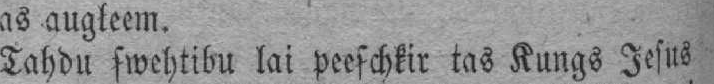 as augkeem.
Tahdu ſwehtibu lai peeſchkir tas Kungs Jeſus